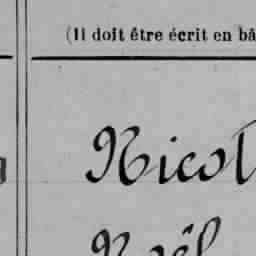 (Il doit être écrit en bâ
Nicol
Noël